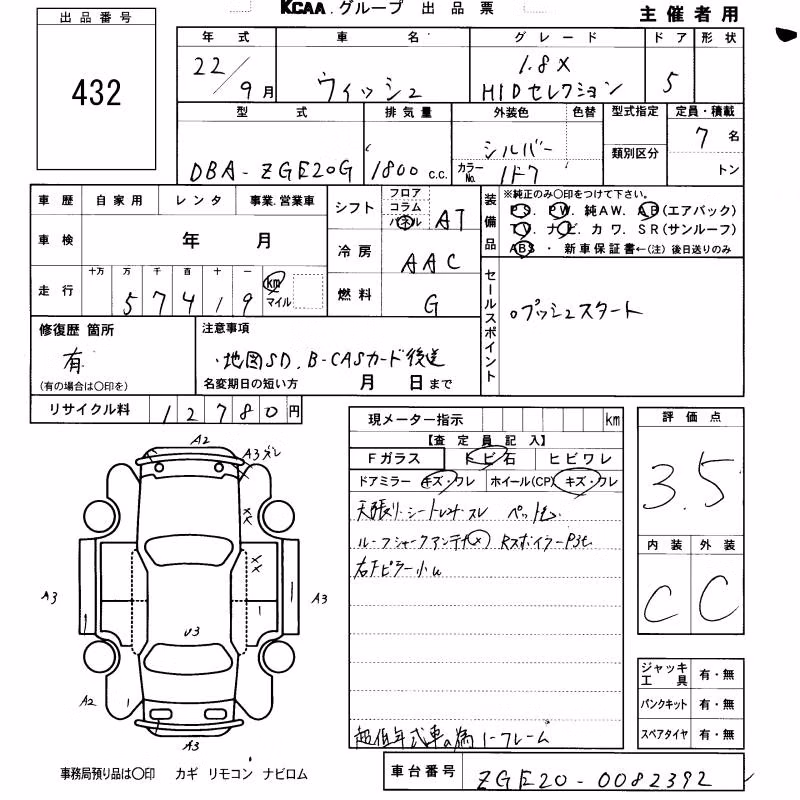 KCAA.グループ 出品票
主催者用
出品番号
432
年式 車名 グレード ドア 形状
22/9月 ウィッシュ 1.8X HIDセレクション 5
型式 排気量 外装色 色替 型式指定 定員・積載
DBA-ZGE20G 1800 c.c. シルバー 7名
カラーNo. 1F7 類別区分 トン
車歴 自家用 レンタ 事業.営業車
車検 年 月
走行 十万 万 千 百 十 一
57419 km マイル
シフト フロア コラム パネル AT
冷房 AAC
燃料 G
装備品
※純正のみ〇印をつけて下さい。
PS. PW. 純AW. AB(エアバック)
TV. ナビ. カワ. SR(サンルーフ)
ABS ・ 新車保証書←(注) 後日送りのみ
セールスポイント
oプッシュスタート
修復歴 箇所
有
(有の場合は〇印を)
注意事項
・地図SD、B-CASカード後送
名変期日の短い方 月 日まで
リサイクル料 12780円
現メーター指示 km
【査定員記入】
Fガラス トビ石 ヒビワレ
ドアミラー キズ・ワレ ホイール(CP) キズ・ワレ
天張り、シート
ルーフシャークアンテナ(×) Rスポイラー
右Fピラー小
超低年式車の為
フレーム
評価点
3.5
内装 外装
C C
ジャッキ工具 有・無
パンクキット 有・無
スペアタイヤ 有・無
A2
A3
XX
XX
A3
A3
1
1
1
U3
A2
1
A3
事務局預り品は〇印 カギ リモコン ナビロム
車台番号 ZGE20-0082392